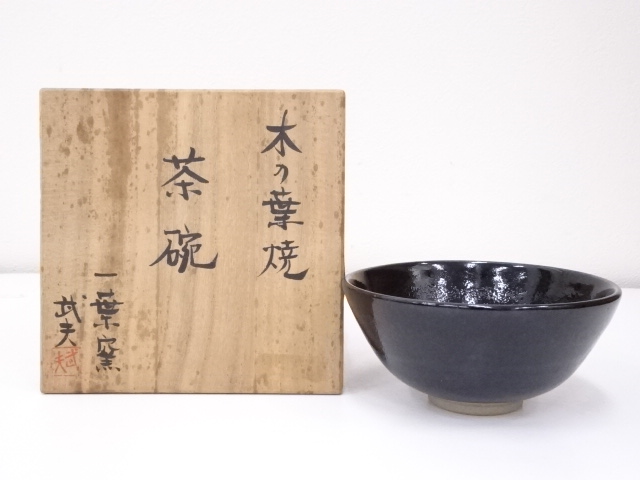 木の葉焼
茶碗
一葉窯
武夫
武夫